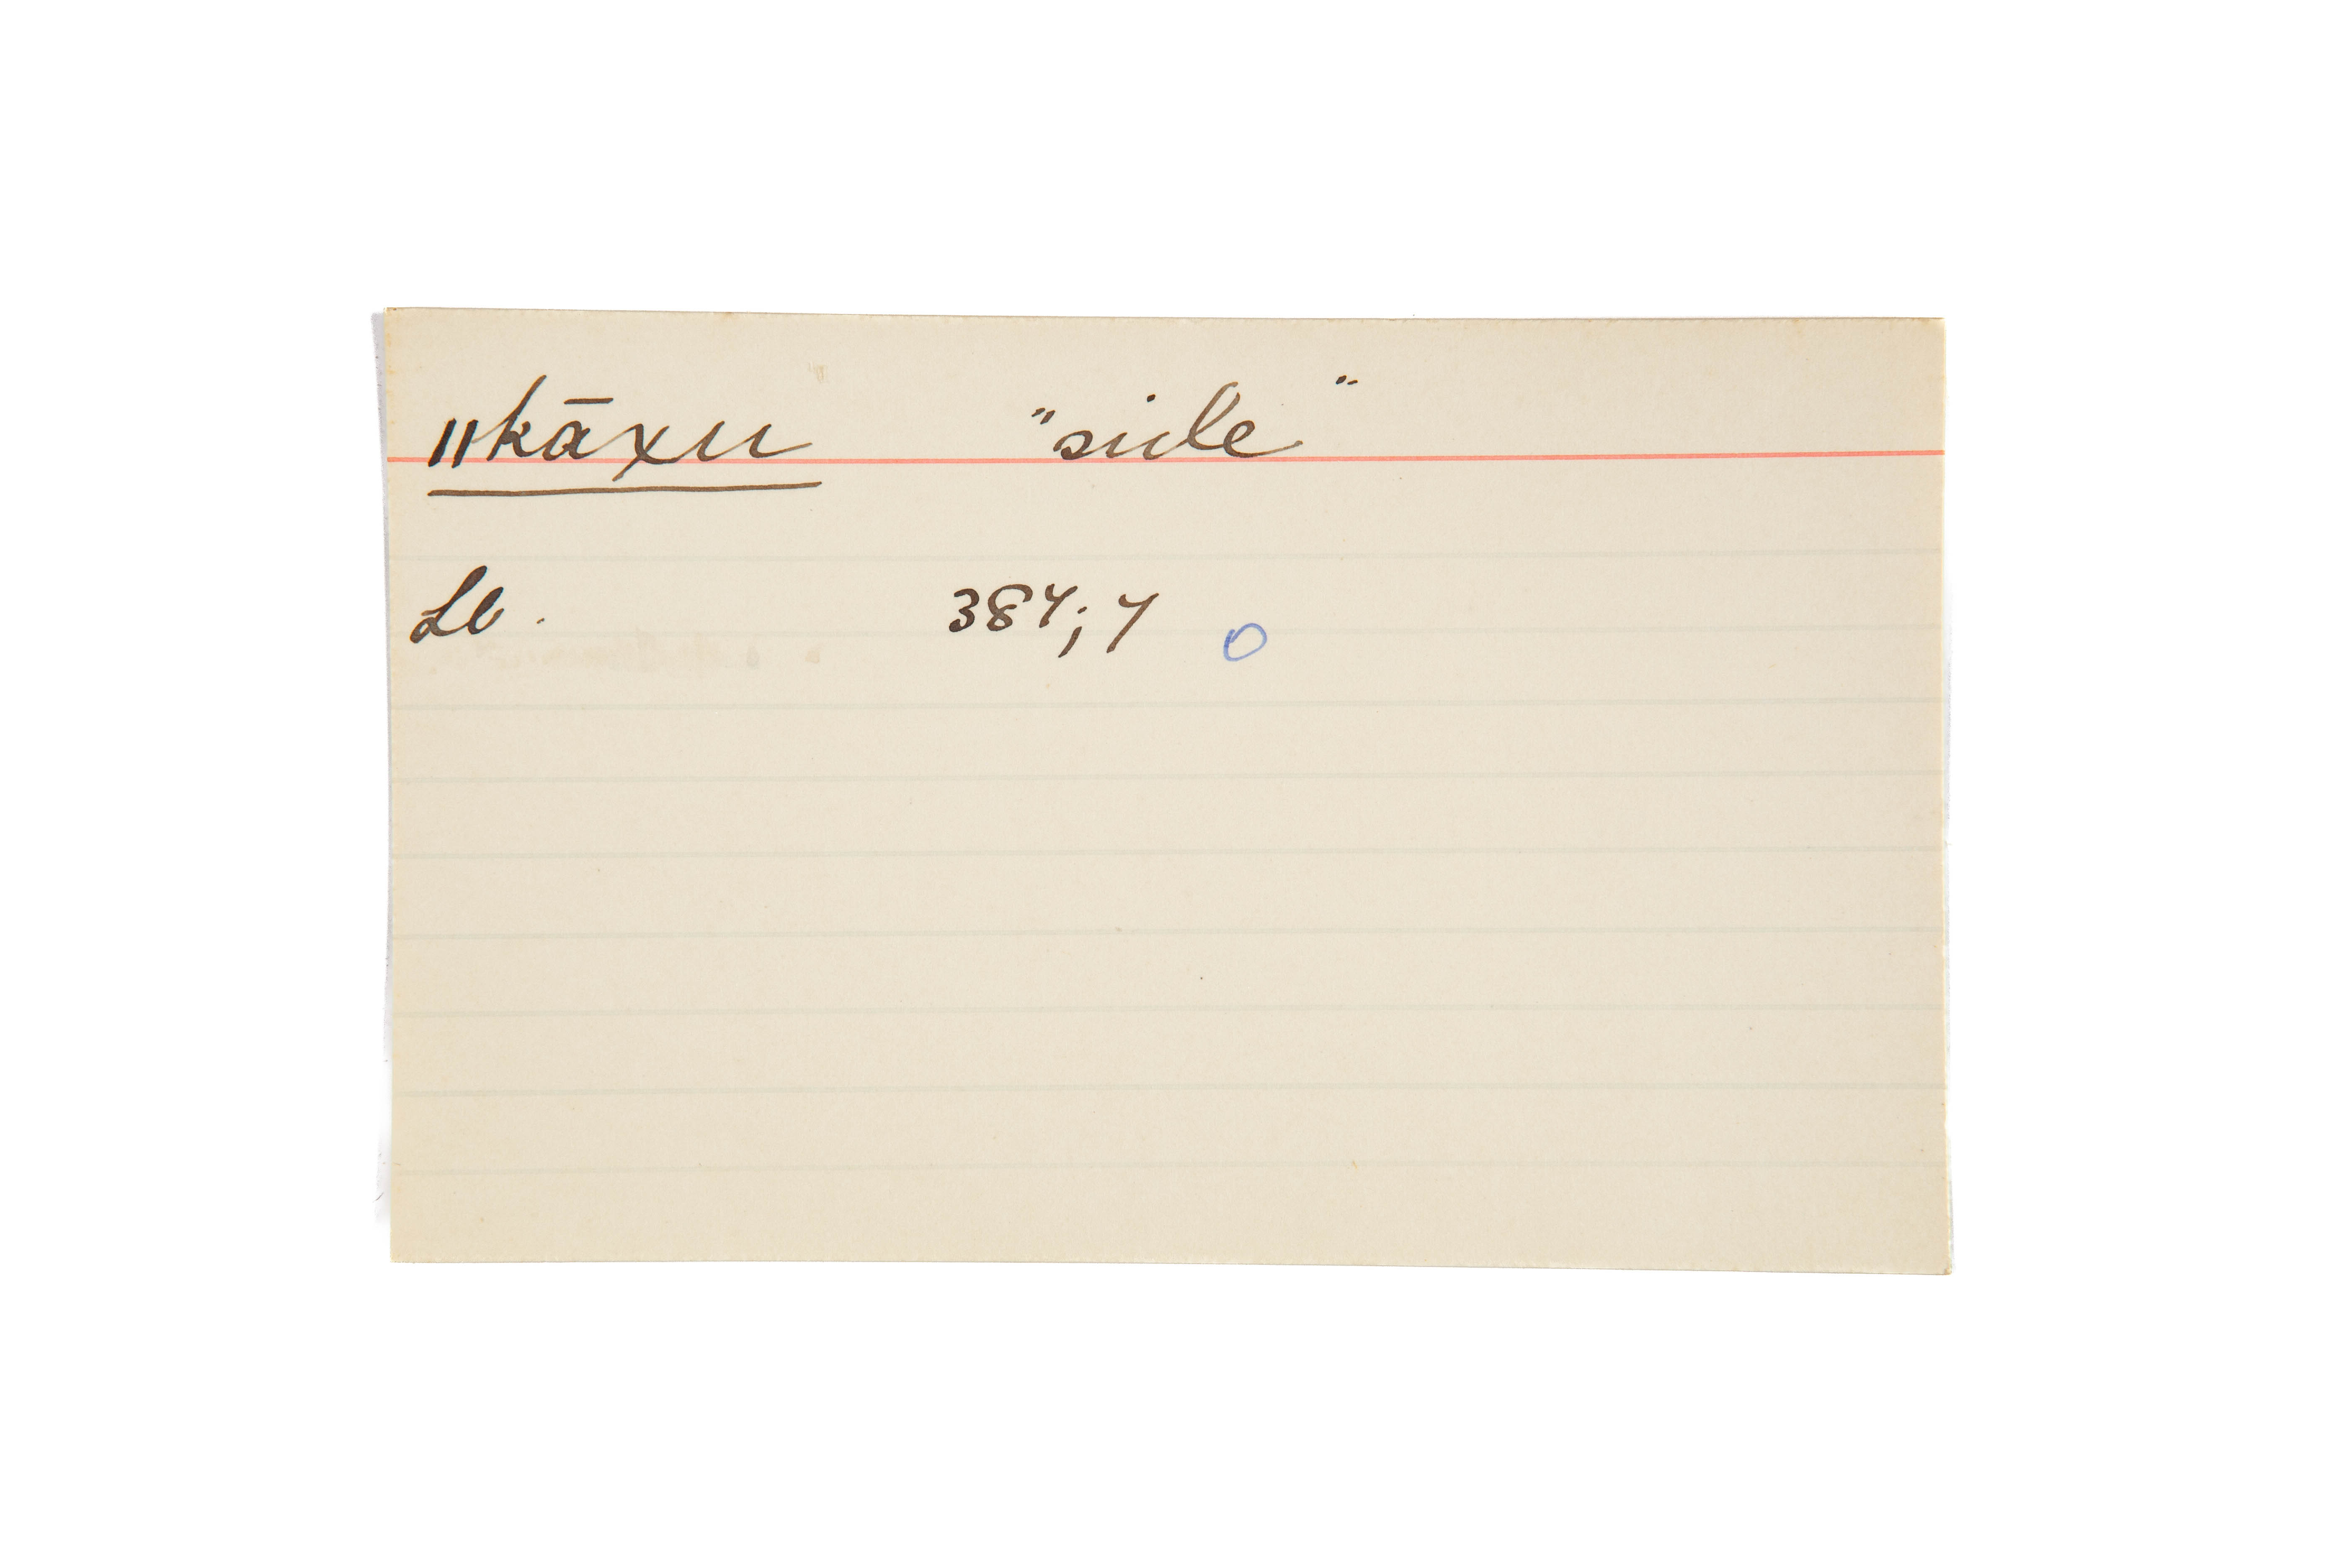 ǁkāxu "side"
Lb. 387; 7 o